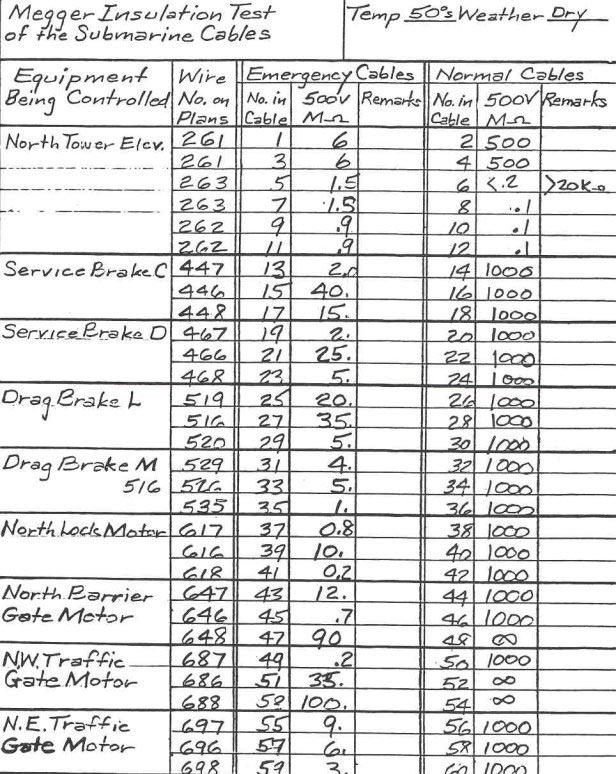 Megger Insulation Test
of the Submarine Cables
Temp 50°s Weather Dry
Equipment Being Controlled | Wire No. on Plans | Emergency Cables | Normal Cables
No. in Cable | 500V M-Ω | Remarks | No. in Cable | 500V M-Ω | Remarks
North Tower Elev. 261 1 6 2 500
261 3 6 4 500
263 5 1.5 6 <.2 >20K
263 7 1.5 8 .1
262 9 .9 10 .1
262 11 .9 12 .1
Service Brake C 447 13 2.0 14 1000
446 15 40. 16 1000
448 17 15. 18 1000
Service Brake D 467 19 2. 20 1000
466 21 25. 22 1000
468 23 5. 24 1000
Drag Brake L 519 25 20. 26 1000
516 27 35. 28 1000
520 29 5. 30 1000
Drag Brake M 529 31 4. 32 1000
516 526 33 5. 34 1000
535 35 1. 36 1000
North Lock Motor 617 37 0.8 38 1000
616 39 10. 40 1000
618 41 0.2 42 1000
North Barrier 647 43 12. 44 1000
Gate Motor 646 45 .7 46 1000
648 47 90 48 ∞
N.W. Traffic 687 49 .2 50 1000
Gate Motor 686 51 35. 52 ∞
688 100. 54 ∞
N.E. Traffic 697 55 9. 56 1000
Gate Motor 696 57 6. 58 1000
698 59 3. 60 1000